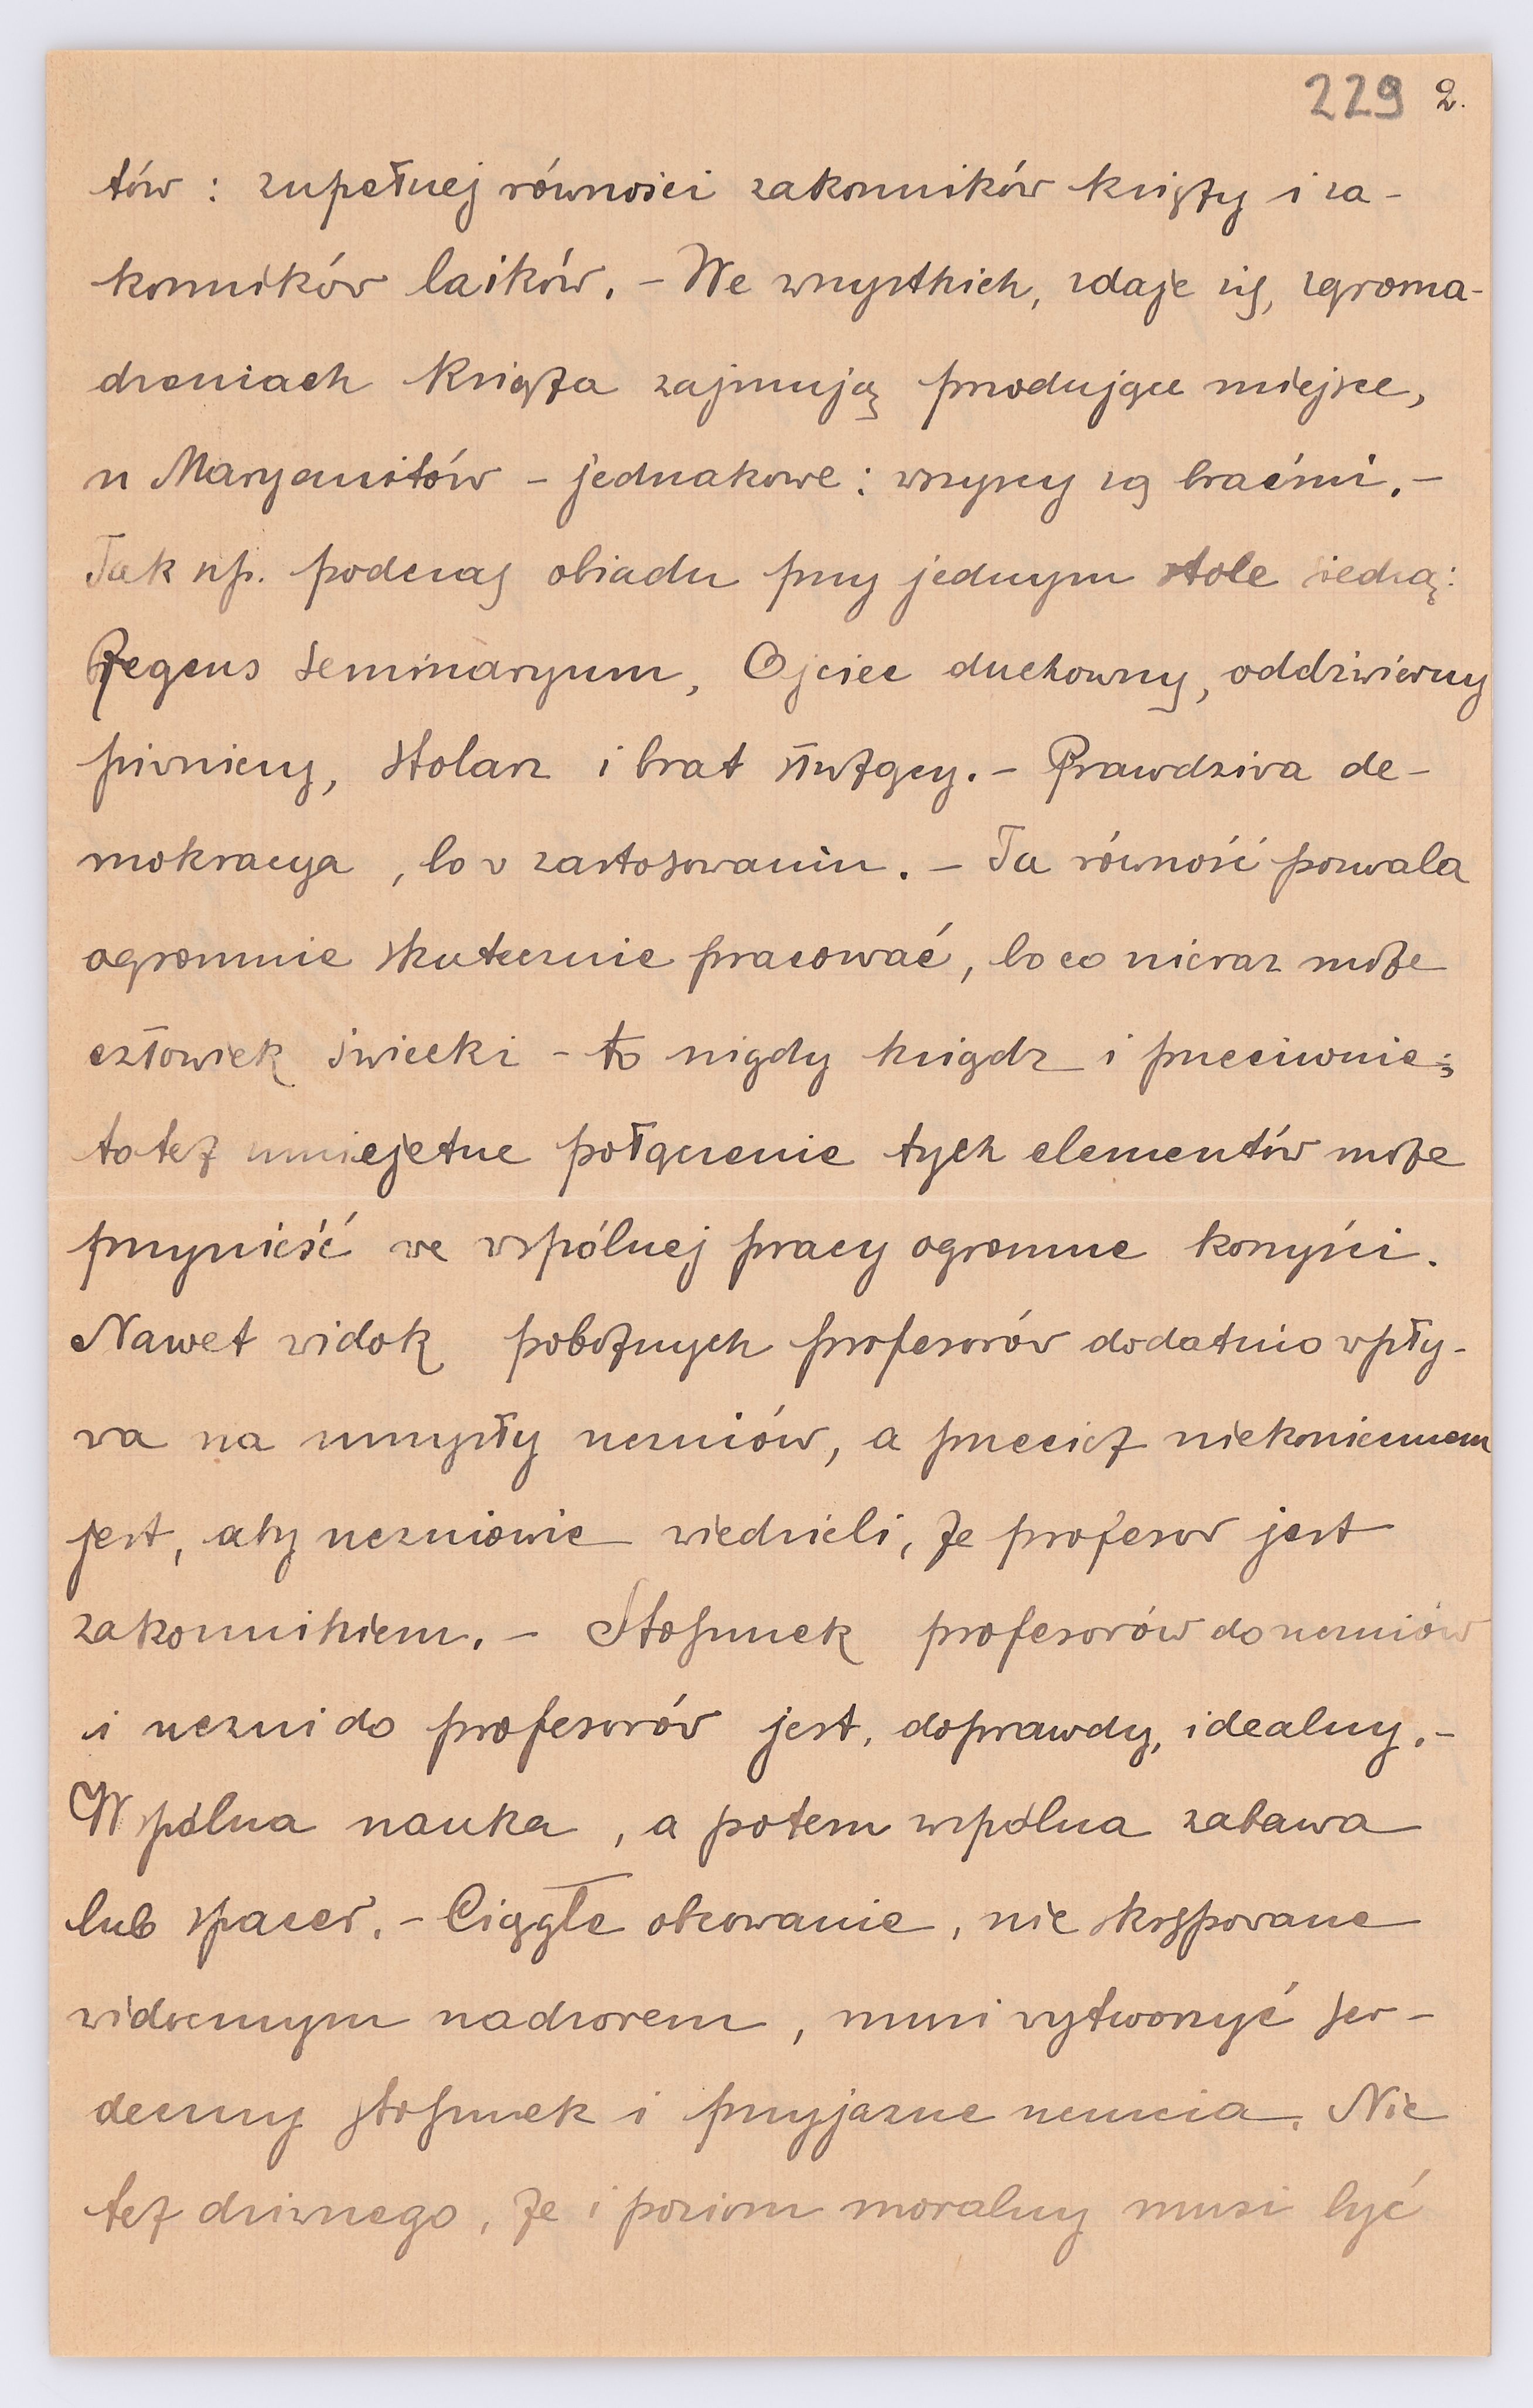 229 2.
tów : zupełnej równości zakonników księży i za-
konników laików. – We wszystkich, zdaje się, zgroma-
dzeniach Księża zajmują przodujące miejsce,
u Maryanitów – jednakowe : wszyscy są braćmi. –
Tak np. podczas obiadu przy jednym stole siedzą:
Regens Seminaryum, Ojciec duchowny, oddźwierny
piwniczy, stolarz i brat służący. – Prawdziwa de-
mokracya, bo w zastosowaniu. – Ta równość pozwala
ogromnie skutecznie pracować, bo co nieraz może
człowiek świecki – to nigdy ksiądz i przeciwnie;
to też umiejętne połączenie tych elementów może
przynieść we wspólnej pracy ogromne korzyści.
Nawet widok pobożnych profesorów dodatnio wpły-
wa na umysły uczniów, a przecież niekoniecznem
jest, aby uczniowie wiedzieli, że profesor jest
zakonnikiem. – Stosunek profesorów do uczniów
i uczni do profesorów jest, doprawdy, idealny. –
Wspólna nauka, a potem wspólna zabawa
lub spacer. – Ciągłe obcowanie, nie skrępowane
widocznym nadzorem, musi wytworzyć ser-
deczny stosunek i przyjazne uczucia. Nic
też dziwnego, że i poziom moralny musi być